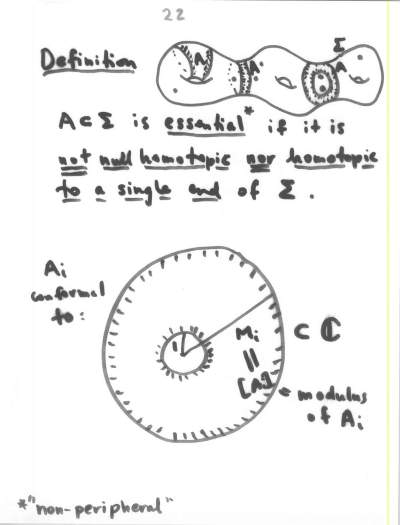 22
Definition
A A A Σ
A ⊂ Σ is essential* if it is
not null homotopic nor homotopic
to a single end of Σ.
Ai
conformal
to:
1 Mi ⊂ ℂ
||
[A] ← modulus
of Ai
*"non-peripheral"